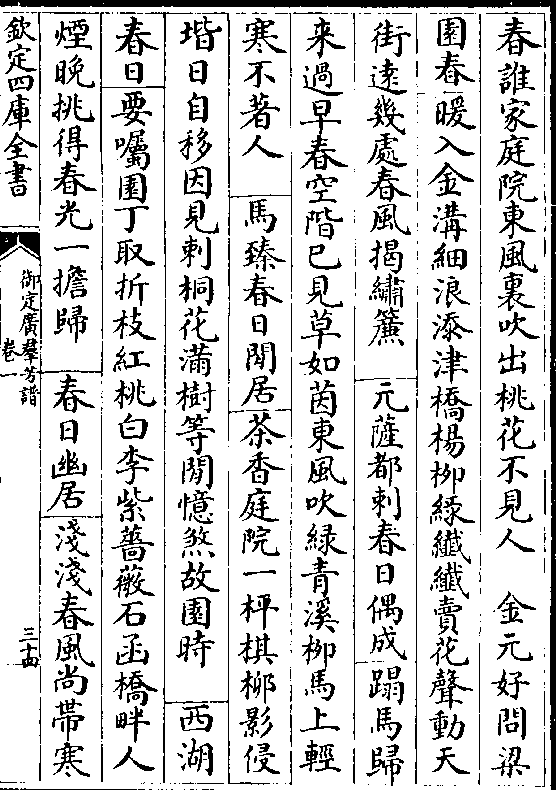 春誰家庭院東風裏吹出桃花不見人　金元好問梁
園春暖入金溝細浪添津橋楊柳緑纖纖賣花聲動天
街逺幾處春風揭繡簾　元薩都剌春日偶成蹋馬歸
来過早春空階已見草如茵東風吹緑青溪柳馬上輕
寒不著人　馬臻春日閒居茶香庭院一枰棋栁影侵
堦日自移因見刺桐花滿樹等閒憶煞故園時　西湖
春日要囑園丁取折枝紅桃白李紫薔薇石函橋畔人
煙晚挑得春光一擔歸　春日幽居淺淺春風尚帶寒
欽定四庫全書
御定廣羣芳譜
卷一
三十四